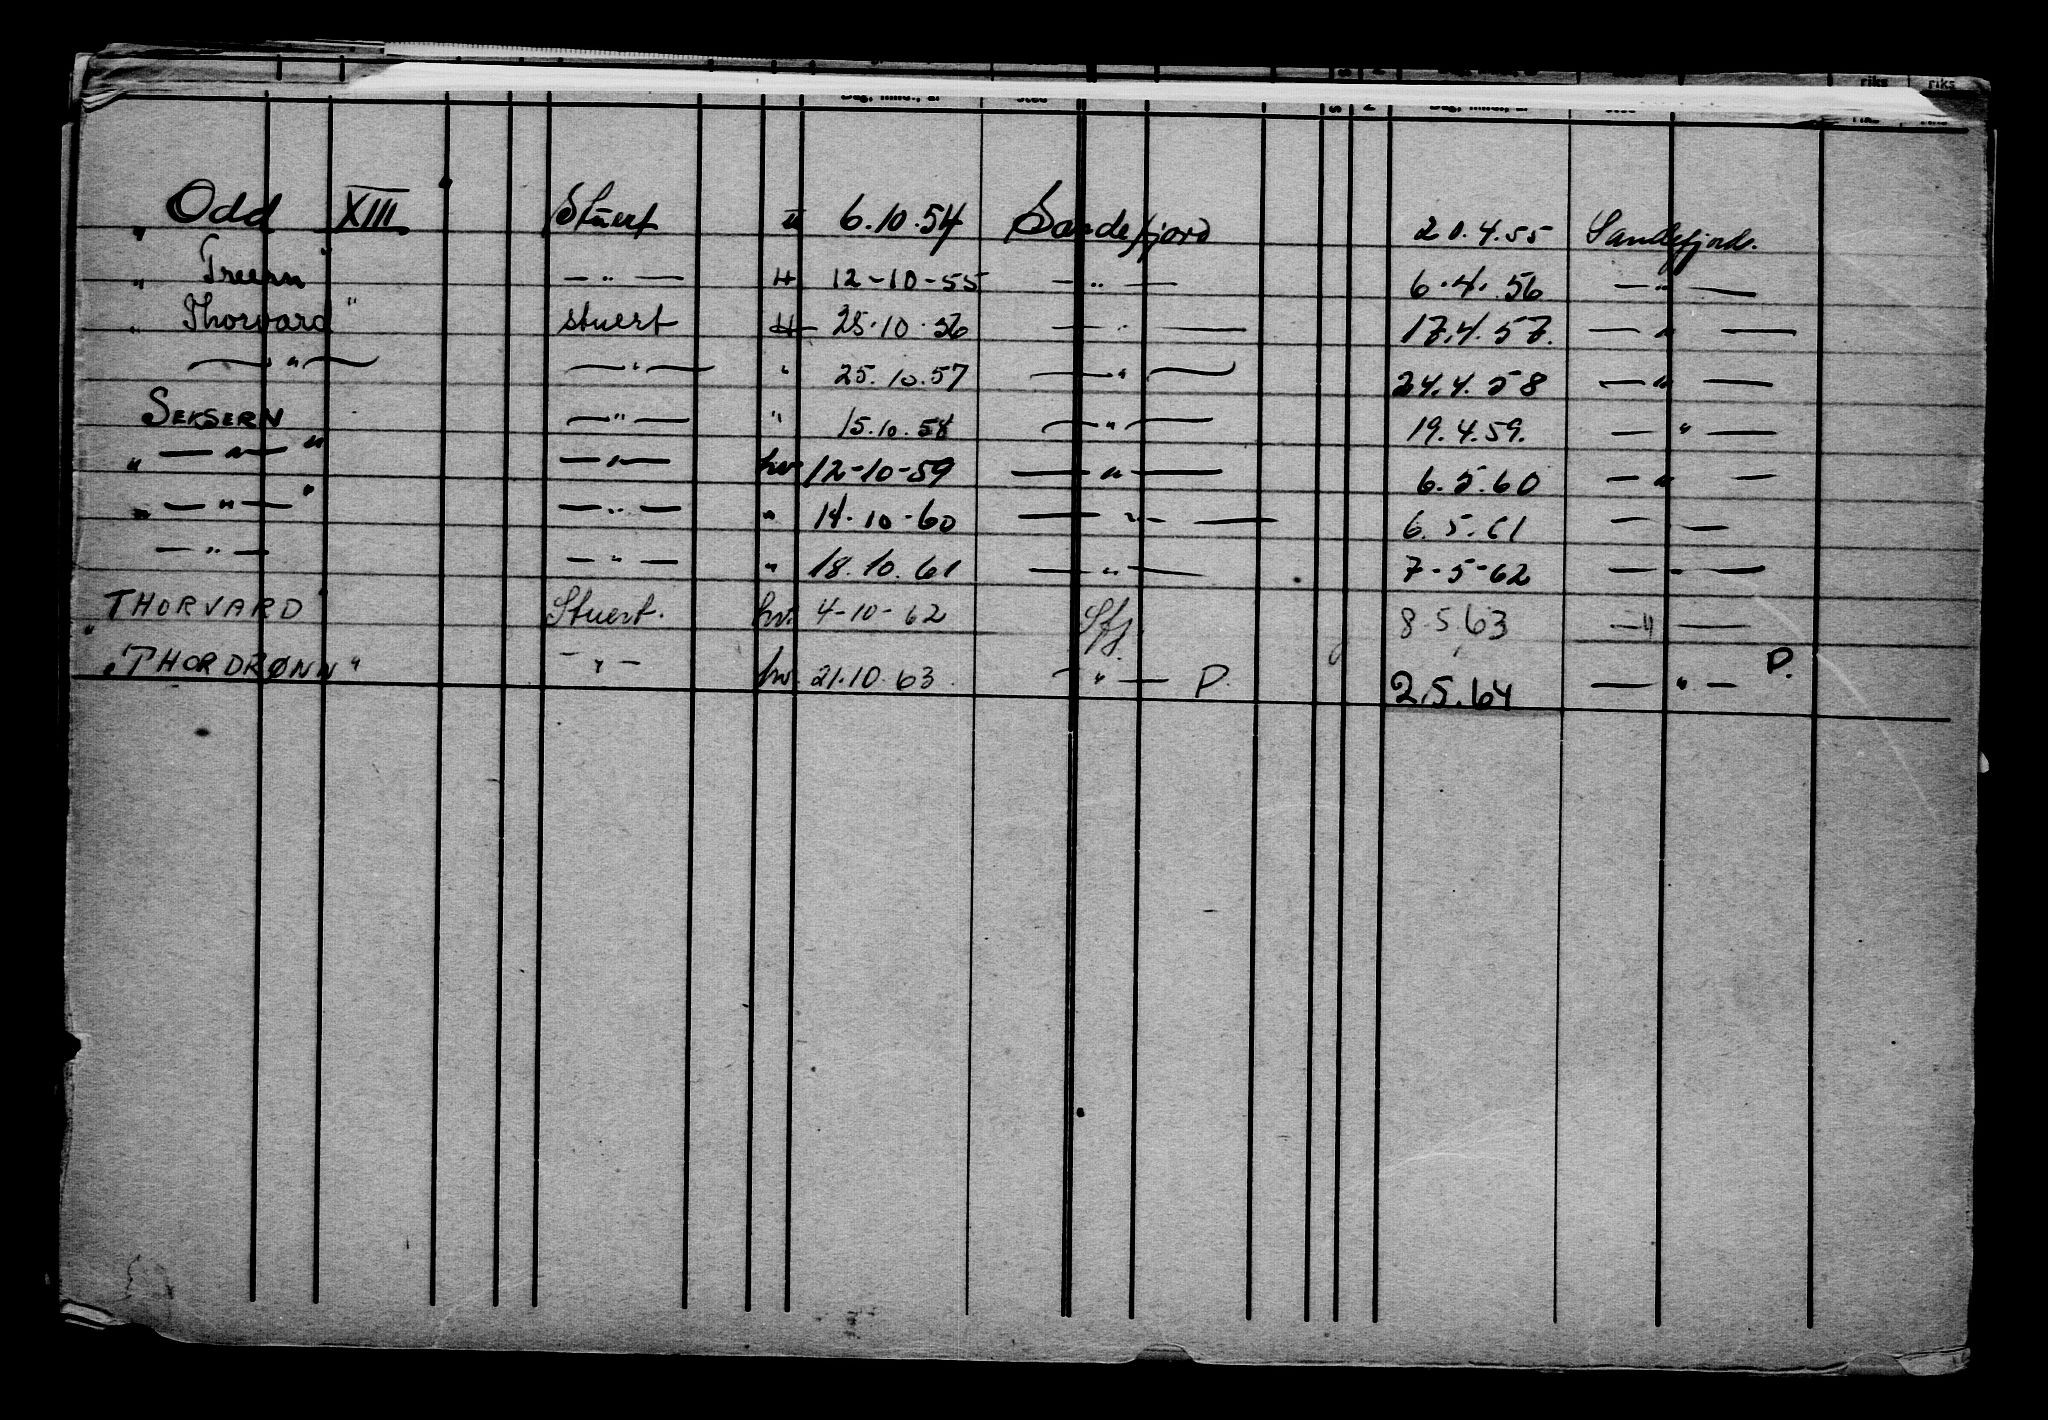 riks riks
" Odd XIII " Stuert 6.10.54 Sandefjord 20.4.55 Sandefjord.
" Treern " — " — H 12-10-55 — " — 6.4.56 — " —
" Thorvard " stuert H 25.10.56 — " — 17.4.57. — " —
— " — — " — " 25.10.57 — " — 24.4.58 — " —
SEKSERN — " — " 15.10.58 — " — 19.4.59. — " —
" — " — " — " — hv. 12-10-59 — " — 6.5.60 — " —
" — " — " — " — " 14.10-60 — " — 6.5.61 — " —
— " — — " — " 18.10.61 — " — 7-5-62 — " —
" THORVARD " Stuert. hv. 4-10-62 Sfj. 8.5.63 — " —
" THORDRØNN " — " — hv. 21.10.63 — " — P. 2.5.64 — " — P.